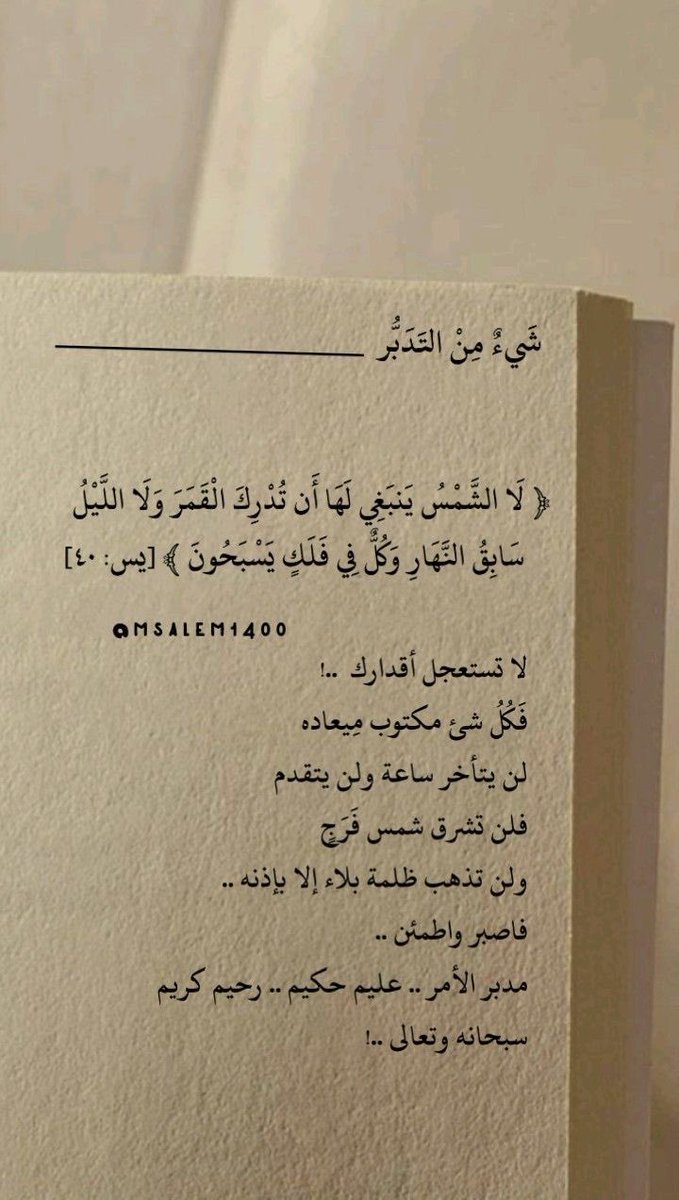 شَيءٌ مِنْ التَدَبُّر
﴿ لَا الشَّمْسُ يَنبَغِي لَهَا أَن تُدْرِكَ الْقَمَرَ وَلَا اللَّيْلُ
سَابِقُ النَّهَارِ وَكُلٌّ فِي فَلَكٍ يَسْبَحُونَ ﴾ [يس: ٤٠]
@MSALEM1400
لا تستعجل أقدارك ..!
فَكُلُ شئ مكتوب مِيعاده
لن يتأخر ساعة ولن يتقدم
فلن تشرق شمس فَرَجٍ
ولن تذهب ظلمة بلاء إلا بإذنه ..
فاصبر واطمئن ..
مدبر الأمر .. عليم حكيم .. رحيم كريم
سبحانه وتعالى ..!